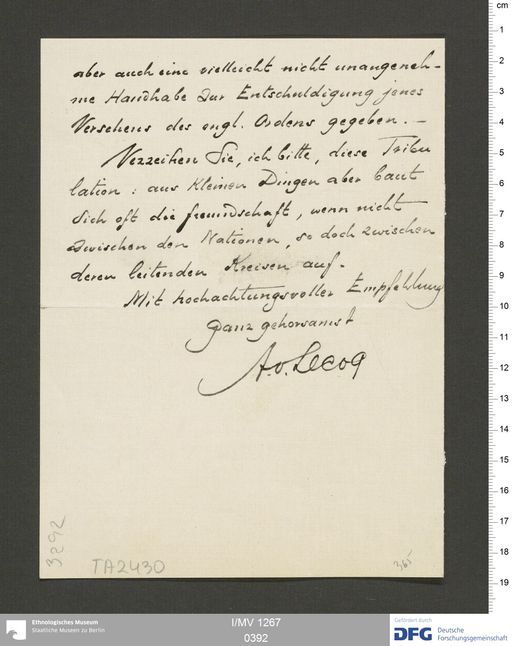 aber auch eine vielleicht nicht unangeneh-
me Handhabe zur Entschuldigung jenes
Versehens des engl. Ordens gegeben. –
Verzeihen Sie, ich bitte, diese Tribu
lation: aus kleinen Dingen aber baut
sich oft die Freundschaft, wenn nicht
zwischen den Nationen, so doch zwischen
deren leitenden Kreisen auf.
Mit hochachtungsvoller Empfehlung
ganz gehorsamst
A. v. Lecoq
3292
TA2430
365
cm
1
2
3
4
5
6
7
8
9
10
11
12
13
14
15
16
17
18
19
Ethnologisches Museum
Staatliche Museen zu Berlin
I/MV 1267
0392
Gefördert durch
DFG Deutsche
Forschungsgemeinschaft